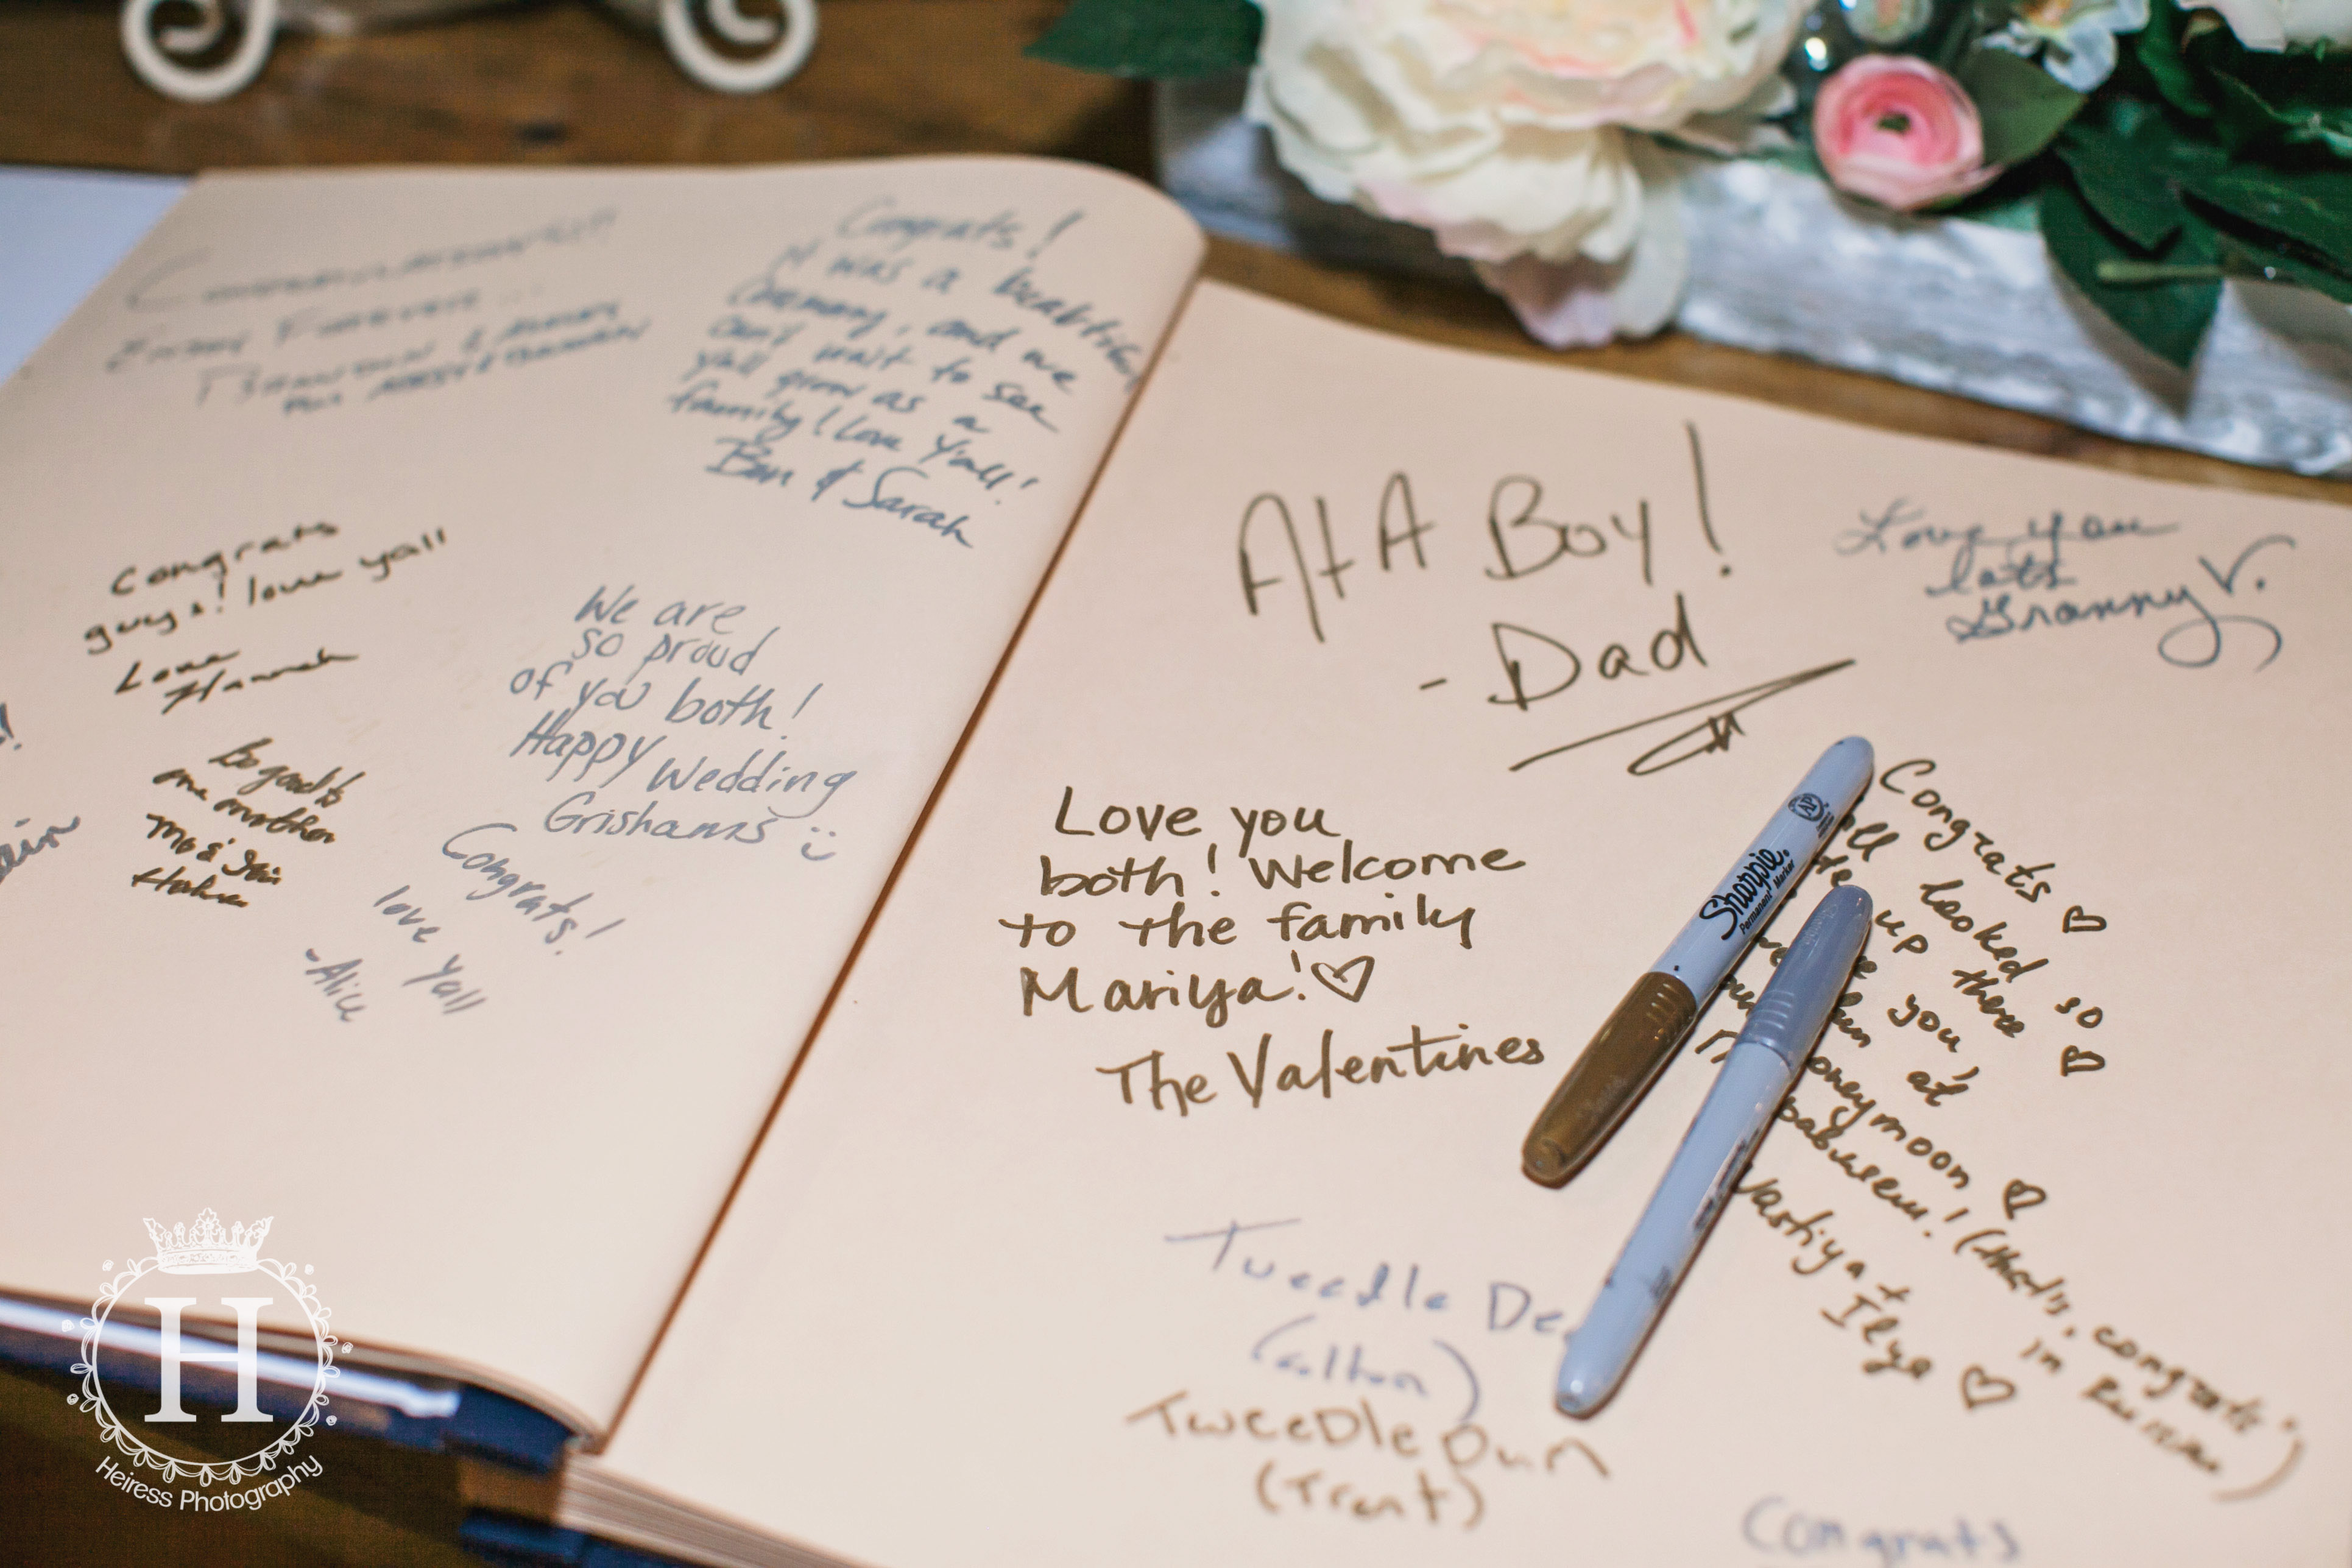 Congratulations!!!
Enjoy Forever...
Brandon &
Plus
Congrats!
It was a beautiful
ceremony, and we
can't wait to see
yall grow as a
family! Love Y'all!
Ben & Sarah
Congrats
guys! love yall
Love
Hannah
Be good to
one another
We are
so proud
of you both!
Happy Wedding
Grishams
Congrats!
love Yall
-Alice
AtA Boy!
- Dad
Love you
lots
Granny V.
Love you
both! Welcome
to the family
Mariya! ♡
The Valentines
Congrats ♡
looked so
up there ♡
you,
at
honeymoon ♡
(that's "congrats"
in Russian)
Nastiya +
Ilya ♡
Sharpie
Permanent Marker
AP
Tweedle De
(colton)
Tweedle Dum
(Trent)
Congrats
H
Heiress Photography